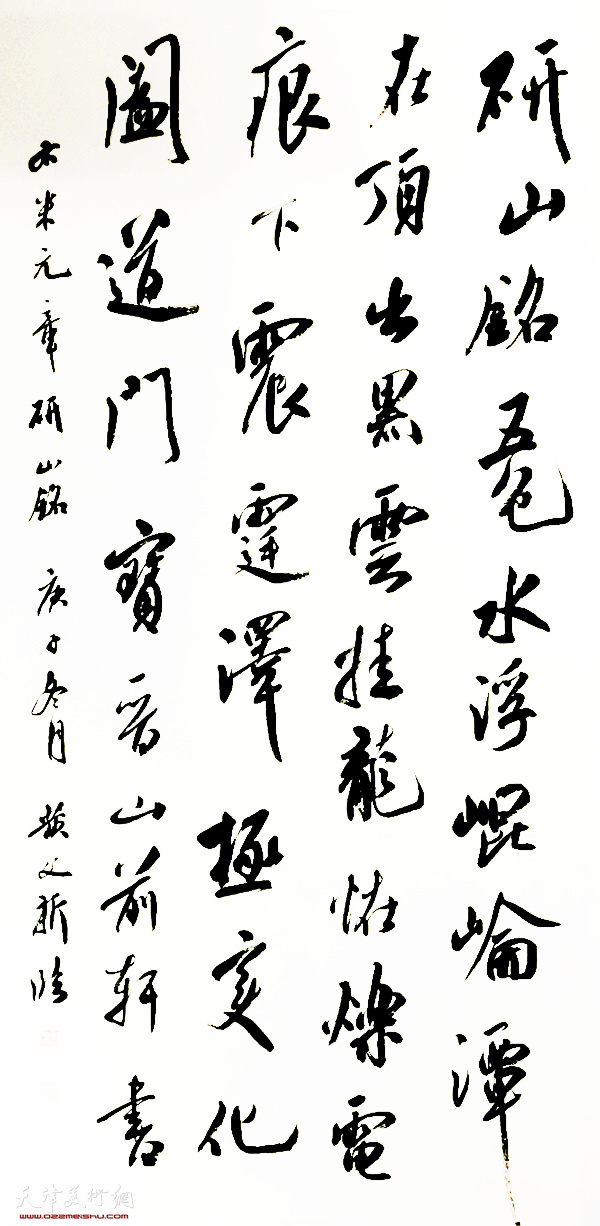 研山銘五色水浮崐崘潭
在頂出黑雲挂龍怪爍電
痕下震霆澤極變化
闔道門寶晉山前軒書
米元章研山銘庚子冬月黃文新临
天津美術網
www.022meishu.com